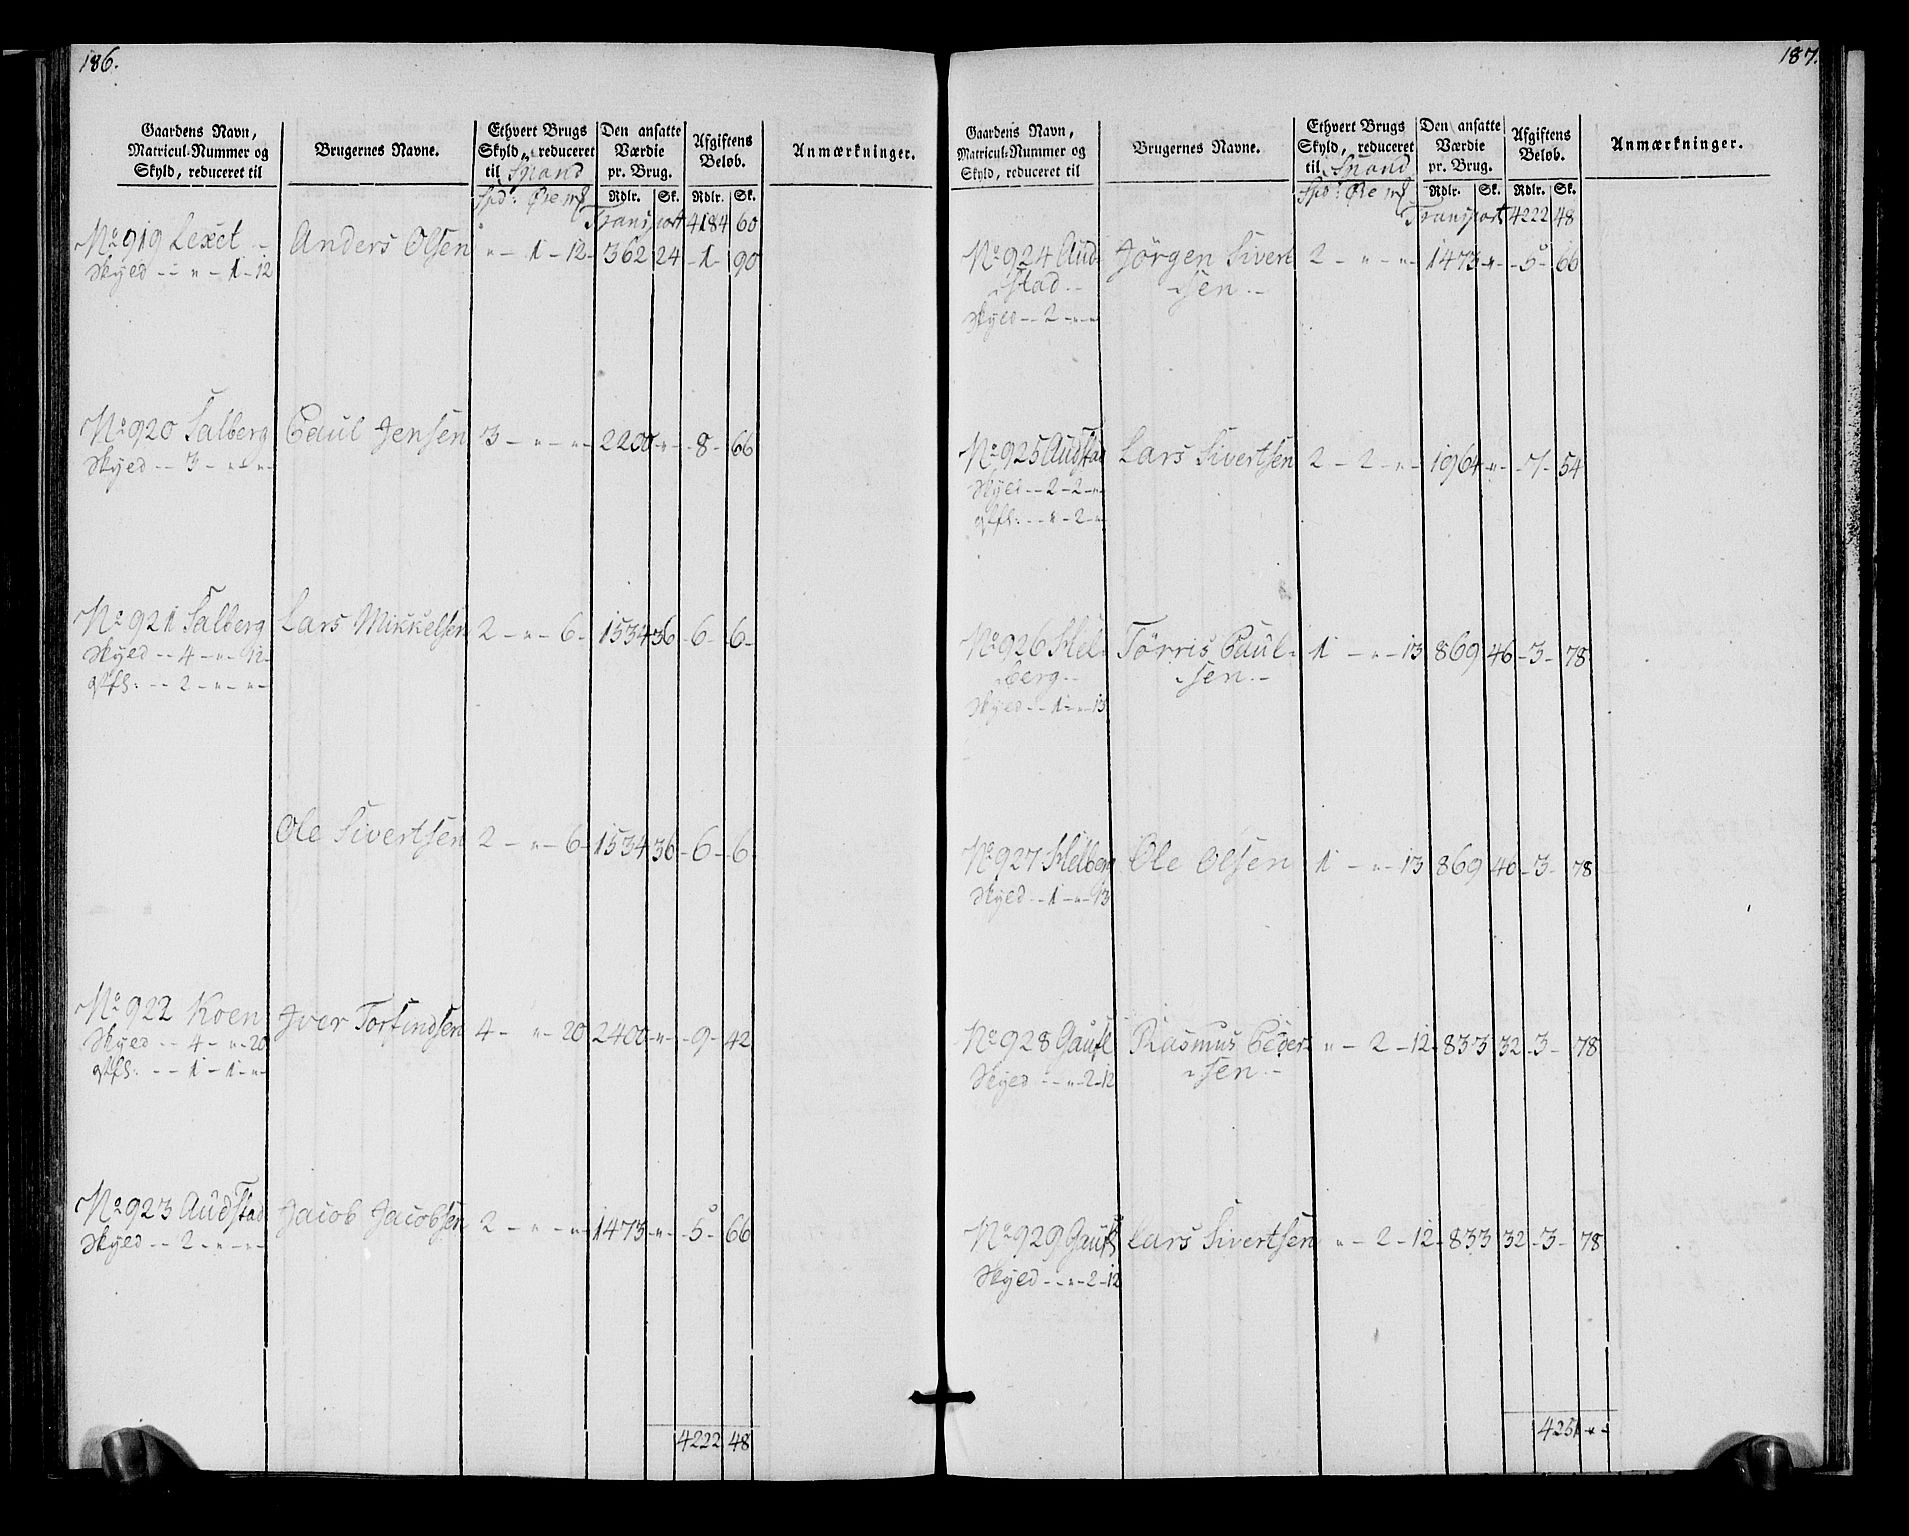 186.
Gaardens Navn, Matricul-Nummer og Skyld, reduceret til | Brugernes Navne. | Ethvert Brugs Skyld, reduceret til Spand | Den ansatte Værdie pr. Brug. | Afgiftens Beløb. | Anmærkninger.
Spd: Øre | Rdlr. | Sk. | Rdlr. | Sk.
Transport 4184 60
No 919 Lexet Anders Olsen " - 1 - 12 - 362 24 - 1 - 90
Skyld - - " - 1 - 12
No 920 Salberg Paul Jensen 3 - " - " - 2200 " - 8 - 66
Skyld - - 3 - " - "
No 921 Salberg Lars Mikkelsen 2 - " - 6 - 1534 36 - 6 - 6 -
Skyld - - 4 - " - 12
- - 2 - " - " -
Ole Sivertsen 2 - " - 6 - 1534 36 - 6 - 6
No 922 Koen Iver Torfindsen 4 - " - 20 2400 " - 9 - 42
Skyld - - 4 - " - 20
- - 1 - 1 - "
No 923 Audstad Jacob Jacobsen 2 - " - " - 1473 " - 5 - 66
Skyld - - 2 - " - "
4222 48
187.
Gaardens Navn, Matricul-Nummer og Skyld, reduceret til | Brugernes Navne. | Ethvert Brugs Skyld, reduceret til Spand | Den ansatte Værdie pr. Brug. | Afgiftens Beløb. | Anmærkninger.
Spd: Øre | Rdlr. | Sk. | Rdlr. | Sk.
Transport 4222 48
No 924 Aud- Jörgen Sivert 2 - " - " - 1473 " - 5 - 66
stad - - sen -
Skyld - - 2 - " - "
No 925 Audstad Lars Sivertsen 2 - 2 - " - 1964 " - 7 - 54
Skyld - - 2 - 2 - "
- - " - 2 - "
No 926 Hel- Törris Paul- 1 - " - 13 869 46 - 3 - 78
berg - - sen -
Skyld - - 1 - " - 13
No 927 Helberg Ole Olsen 1 - " - 13 869 46 - 3 - 78
Skyld - - 1 - " - 13
No 928 Rasmus Peder- " - 2 - 12 - 833 32 - 3 - 78
sen -
Skyld - - " - 2 - 12
No 929 Lars Sivertsen " - 2 - 12 - 833 32 - 3 - 78
Skyld - - " - 2 - 12
4251 " -